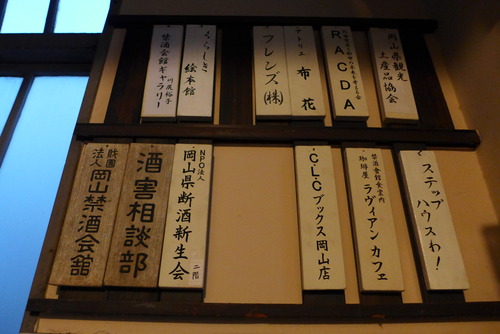 岡山県観光
土産品協会
RACDA
アトリエ
布花
フレンズ(株)
くらしき
絵本館
禁酒会館ギャラリー
ステップ
ハウスわ!
禁酒会館食堂内
珈琲屋
ラヴィアンカフェ
CLCブックス岡山店
NPO法人
岡山県断酒新生会
二階
酒害相談部
財団
法人
岡山禁酒会館